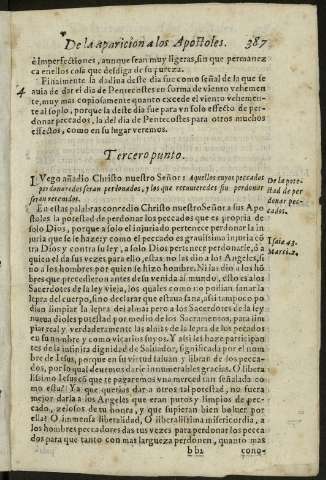 De la aparicion a los Apostoles. 387
è Imperfectiones, aunque sean muy ligeras, sin que permanez
ca en ellos cosa que desdiga de su pureza.
Finalmente la dadiua deste dia fue como señal de la que se
4 auia de dar el dia de Pentecostes en forma de viento vehemen
te, muy mas copiosamente quanto excede el viento vehemen-
te al soplo, porque la deste dia fue vn solo effecto de per-
donar peccados, la del dia de Pentecostes para otros muchos
effectos, como en su lugar veremos.
Tercero punto.
LVego añadio Christo nuestro Señor: Aquellos cuyos peccados
perdonaredes seran perdonados, y los que retuuieredes sin perdonar
seran retenidos.
De la pote-
stad de per
donar pec-
cados.
En estas palabras concedio Christo nuestro Señor a sus Apo
stoles la potestad de perdonar los peccados que es propria de
solo Dios, porque a solo el injuriado pertenece perdonar la in
juria que se le haze; y como el peccado es grauissima injuria cõ
tra Dios y contra su ley, a solo Dios pertenece perdonarle, ò a
quien el da sus vezes para ello, estas no las dio a los Angeles, si
no a los hombres por quien se hizo hombre. Ni las dio a los hõ
bres que precedieron antes de su venida al mundo, esto es a los
Sacerdotes de la ley vieja, los quales como no podian sanar la
lepra del cuerpo, sino declarar que estaua sana, assi tampoco po
dian limpiar la lepra del alma: pero a los Sacerdotes de la ley
nueua dioles potestad por medio de los Sacramentos, para lim
piar real y verdaderamente las almas de la lepra de los peccados
en su nombre y como vicarios suyos. Y assi les haze participan
tes de la infinita dignidad de Saluador, significada por el nom
bre de Iesus, porque en su virtud saluan y libran de los pecca-
dos, por lo qual deuemos darle innumerables gracias. O libera
lissimo Iesus cõ que te pagaremos vna merced tan señalada co
mo esta? Ya que querias dar a otros tal potestad, no fuera
mejor darla a los Angeles que eran puros y limpios de pec-
cado, zelosos de tu honra, y que supieran bien boluer por
ella? O immensa liberalidad, O liberalissima misericordia, a
los hombres peccadores das tus vezes para perdonar los pecca
dos para que tanto con mas largueza perdonen, quanto mas
Isaiæ 43.
Marci. 2.
bb2 cono-